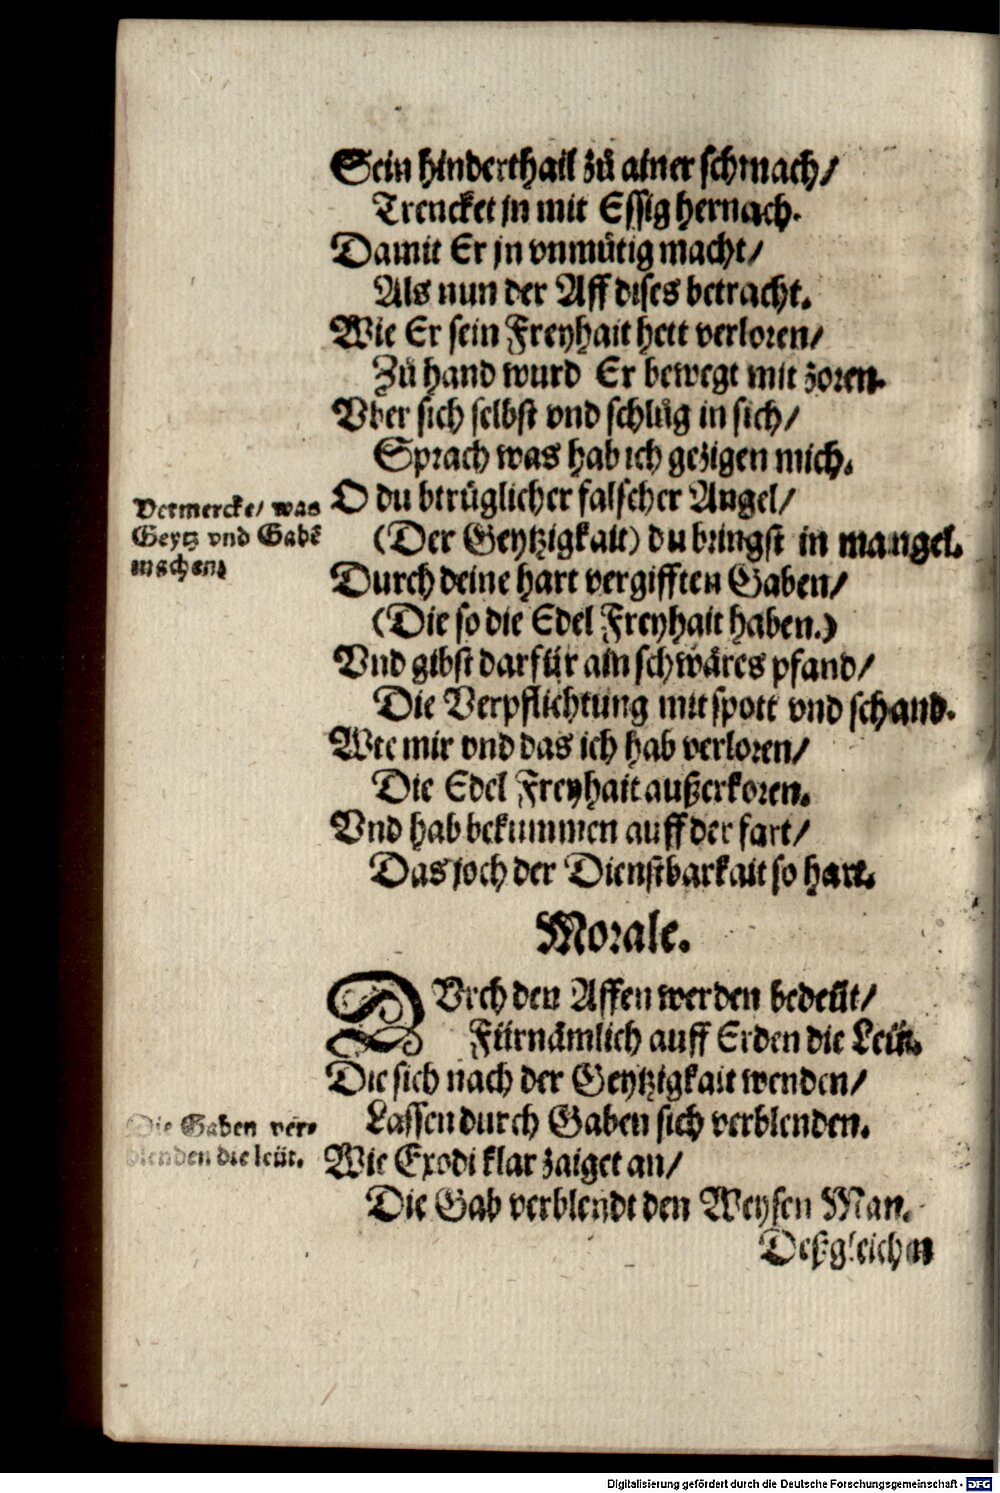 Sein hinderthail zů ainer schmach/
Trencket jn mit Essig hernach.
Damit Er jn vnmůtig macht/
Als nun der Aff dises betracht.
Wie Er sein Freyhait hett verloren/
Zů hand wurd Er bewegt mit zoren.
Vber sich selbst vnd schlůg in sich/
Sprach was hab ich gezigen mich.
O du btrüglicher falscher Angel/
(Der Geytzigkait) du bringst in mangel.
Durch deine hart vergifften Gaben/
(Die so die Edel Freyhait haben.)
Vnd gibst darfür ain schwäres pfand/
Die Verpflichtung mit spott vnd schand.
Wie mir vnd das ich hab verloren/
Die Edel Freyhait außerkoren.
Vnd hab bekummen auff der fart/
Das joch der Dienstbarkait so hart.
Vermercke/ was
Geytz vnd Gabē
machen.
Morale.
DVrch den Affen werden bedeüt/
Fürnämlich auff Erden die Leüt.
Die sich nach der Geytzigkait wenden/
Lassen durch Gaben sich verblenden.
Wie Exodi klar zaiget an/
Die Gab verblendt den Weysen Man.
Die Gaben ver-
blenden die leüt.
Deßgleichen
Digitalisierung gefördert durch die Deutsche Forschungsgemeinschaft - DFG